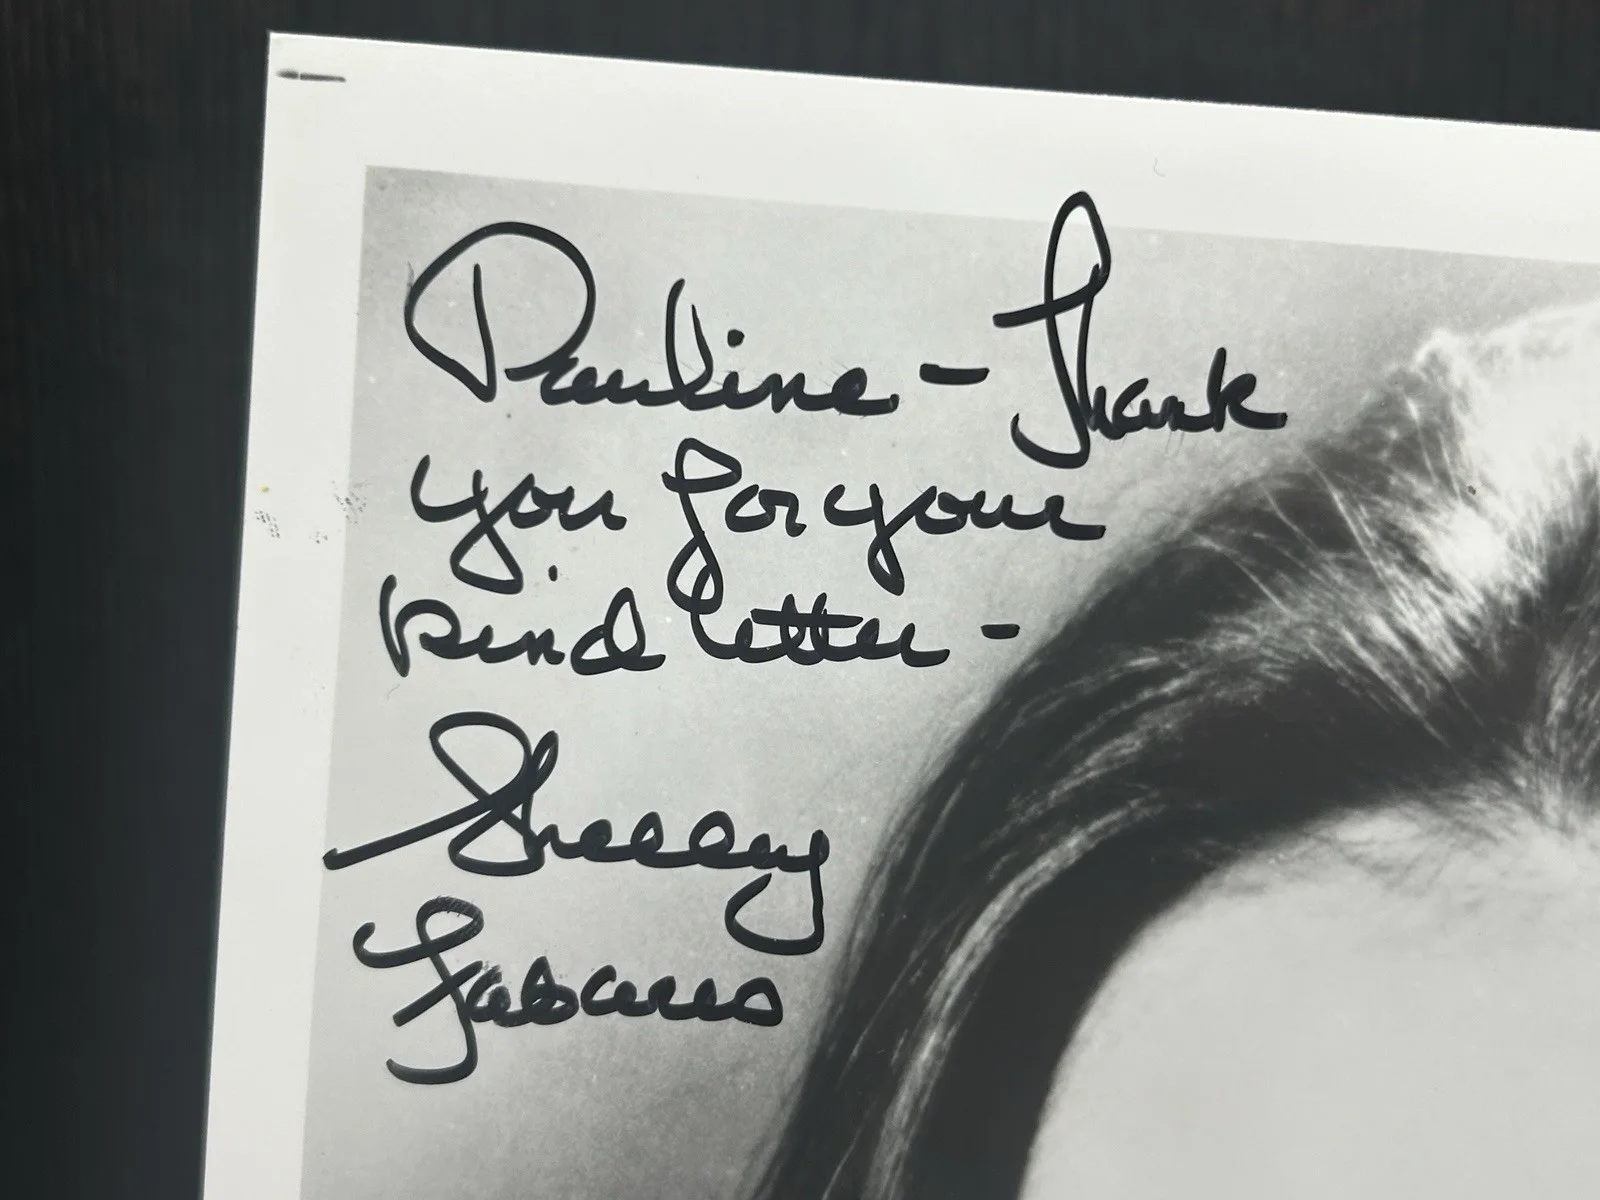 Pauline - Thank
you for your
kind letter -
Shelley
Fabares